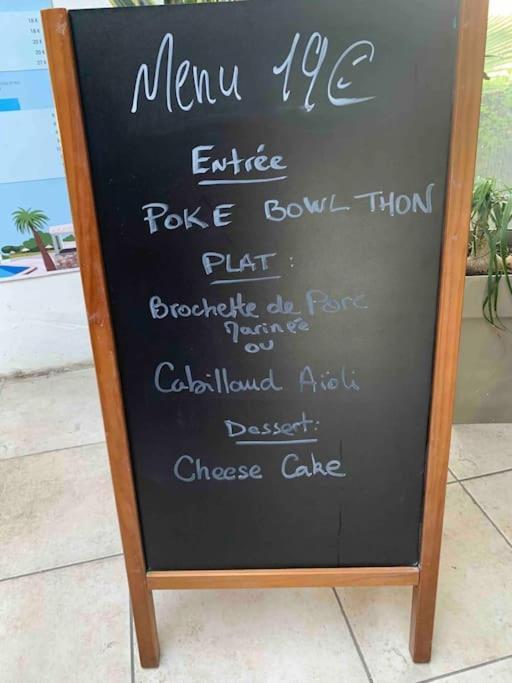 Menu 19€
Entrée
POKE BOWL THON
PLAT :
Brochette de Porc
Marinée
ou
Cabillaud Aïoli
Dessert:
Cheese Cake